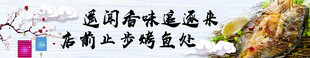 遥闻香味追逐来
店前止步烤鱼处